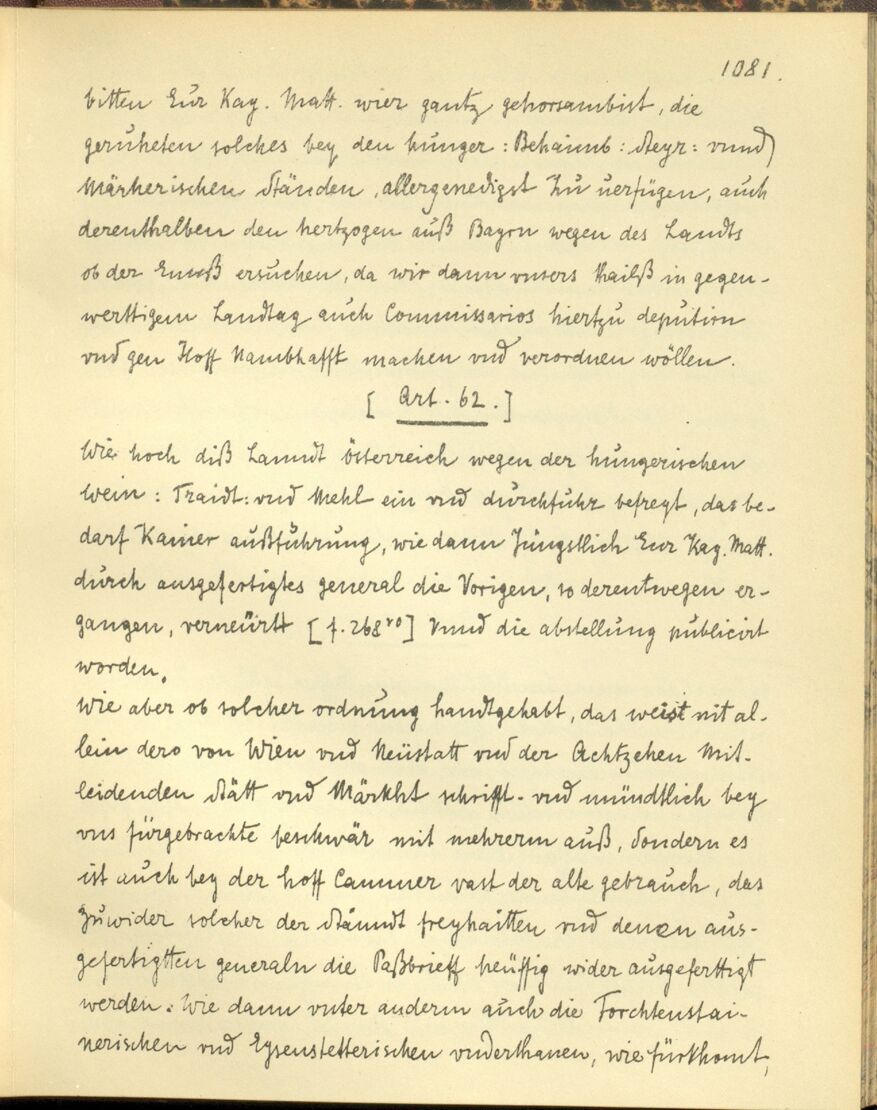 1081.
bitten Eur Kay. Matt. wier gantz gehorsambist, die
geruheten solches bey den hunger: Behaimb: Steyr: vnnd
Märherischen Ständen, allergenedigst zu uerfügen, auch
derenthalben den hertzogen auß Bayrn wegen des Landts
ob der Ennß ersuchen, da wir dann vnsers thailß in gegen-
werttigem Landtag auch Commissarios hiertzu deputirn
vnd gen Hoff Nambhafft machen vnd verordnen wöllen.
[Art. 62.]
Wie hoch diß Lanndt österreich wegen der hungerischen
Wein: Traidt: vnd Mehl ein vnd durchfuhr befreyt, das be-
darf Kainer außführung, wie dann Jüngstlich Eur Kay. Matt.
durch ausgefertigtes general die Vorigen, so derentwegen er-
gangen, verneürtt [f. 268 vo] Vnnd die abstellung publicirt
worden.
Wie aber ob solcher ordnung handtgehabt, das weist nit al-
lein dero von Wien vnd Neüstatt vnd der Achtzehen Mit-
leidenden Stätt vnd Märkht schrifft- vnd mündtlich bey
vns fürgebrachte beschwär mit mehrerm auß, sondern es
ist auch bey der hoff Cammer vast der alte gebrauch, das
zuwider solcher der Stänndt freyhaitten vnd denen aus-
gefertigtten generaln die Paßbrieff heüffig wider ausgeferttigt
werden. Wie dann vnter anderm auch die Forchtenstai-
nerischen vnd Eysenstetterischen vnderthanen, wie fürkhomt,